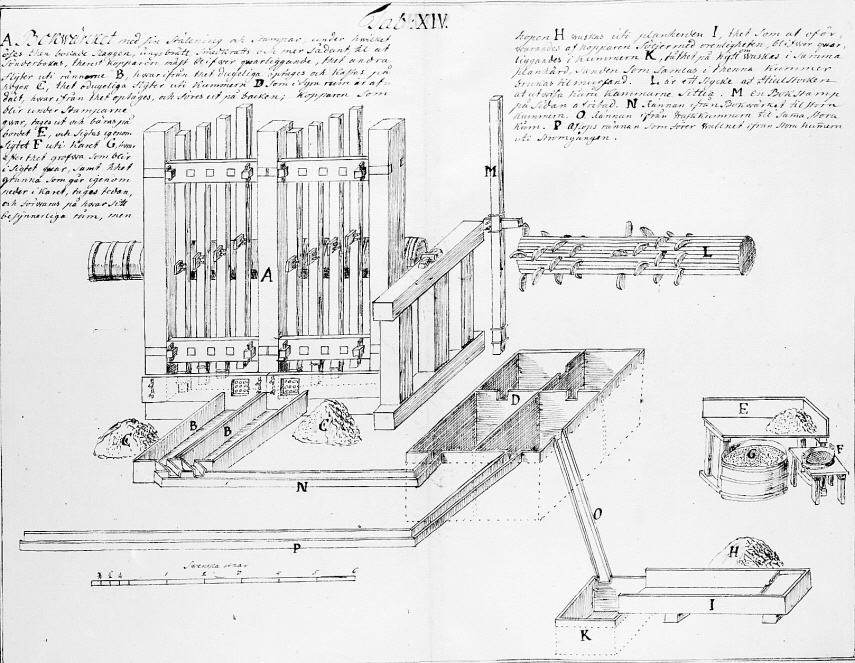 Tab: XIV.
A Bokwärcket med sin Ställning och Stampar, under hwilket
öses then bokade Slaggen, Ungsbrått, Smedkratts och mer Sådant til at
Sönderbokas, therest kopparen mäst blifwer quarliggande, thet andra
Sigter uti rännorne B, hwarifrån thet dugeliga optages och kastas på
högen C, thet odugeliga Sigter uti Kummern D Som i Syn rutor är af-
dält, hwarifrån thet optages, och föres ut på backen; Kopparen Som
blir under Stamparne
qwar, tages ut och bäres på
bordet E, och Sigtas igenom
Sigtet F uti Karet G, hwar
efter thet grofwa Som blir
i Sigtet qwar, Samt thet
Som går igenom
neder i Karet, tages sedan,
och förwaras på hwar sitt
rum, men
hopen H waskas uti plankerden I, thet Som at oför,
warandes af kopparen följer med orenligheten, blifwer quar,
liggandes i kummern K, tå thet på nytt waskas i Samma
Sanden Som Samlas i thenna kummer
brukas til L är ett stycke af Hiulstocken
at utwisa huru kammarne Sittia. M en Bokstamp
på Sidan afritad. N Rännan ifrån Bokwärcket til Stora
kummern. O Rännan ifrån Waskkummern til Sama Stora
kum. P aflops rännan Som förer wattnet ifrån Stora kumern
uti Strömgången.
M
L
A
D
B
B
C
C
E
G
F
N
O
P
H
I
K
Swenska alnar
1 2 3 4 5 6